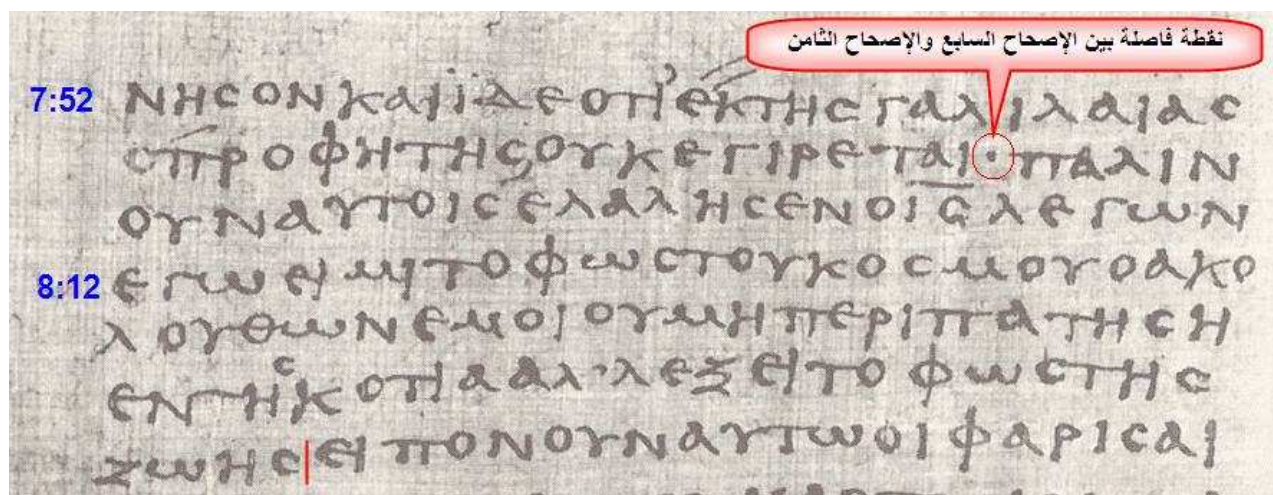 نقطة فاصلة بين الإصحاح السابع والإصحاح الثامن
7:52 ΝΗϹΟΝΚΑΙΪΔΕΟΤΙΕΚΤΗϹΓΑΛΙΛΑΙΑϹ
ΟΠΡΟΦΗΤΗϹΟΥΚΕΓΙΡΕΤΑΙ·ΠΑΛΙΝ
ΟΥΝΑΥΤΟΙϹΕΛΑΛΗϹΕΝΟΙ̅Ϲ̅ΛΕΓΩΝ
8:12 ΕΓΩΕΙΜΙΤΟΦΩϹΤΟΥΚΟϹΜΟΥΟΑΚΟ
ΛΟΥΘΩΝΕΜΟΙΟΥΜΗΠΕΡΙΠΑΤΗϹΗ
ΕΝΤΗϹΚΟΤΙΑΑΛ·ΛΕΞΕΙΤΟΦΩϹΤΗϹ
ΖΩΗϹ|ΕΙΠΟΝΟΥΝΑΥΤΩΟΙΦΑΡΙϹΑΙ